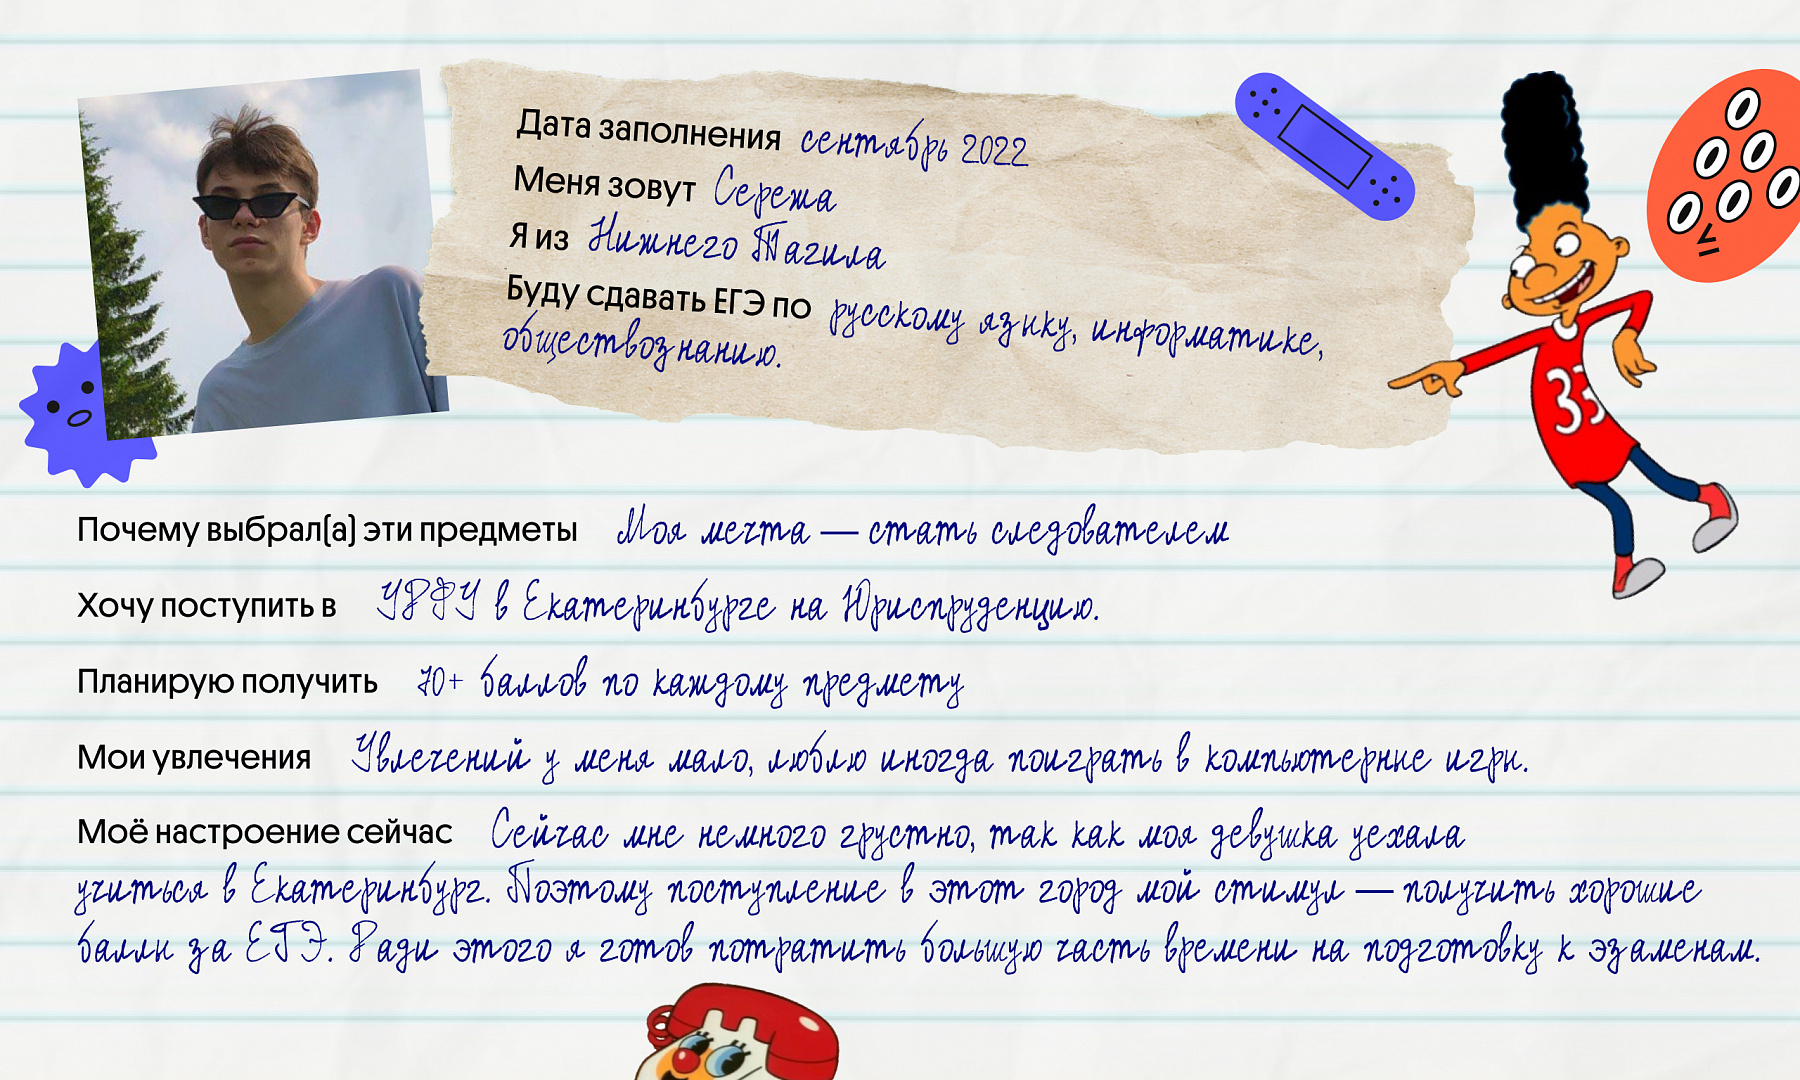 Дата заполнения сентябрь 2022
Меня зовут Сережа
Я из Нижнего Тагила
Буду сдавать ЕГЭ по русскому языку, информатике,
обществознанию.
33
Почему выбрал(а) эти предметы Моя мечта — стать следователем
Хочу поступить в УРФУ в Екатеринбурге на Юриспруденцию.
Планирую получить 70+ баллов по каждому предмету
Мои увлечения Увлечений у меня мало, люблю иногда поиграть в компьютерные игры.
Моё настроение сейчас Сейчас мне немного грустно, так как моя девушка уехала
учиться в Екатеринбург. Поэтому поступление в этот город мой стимул — получить хорошие
баллы за ЕГЭ. Ради этого я готов потратить большую часть времени на подготовку к эзаменам.